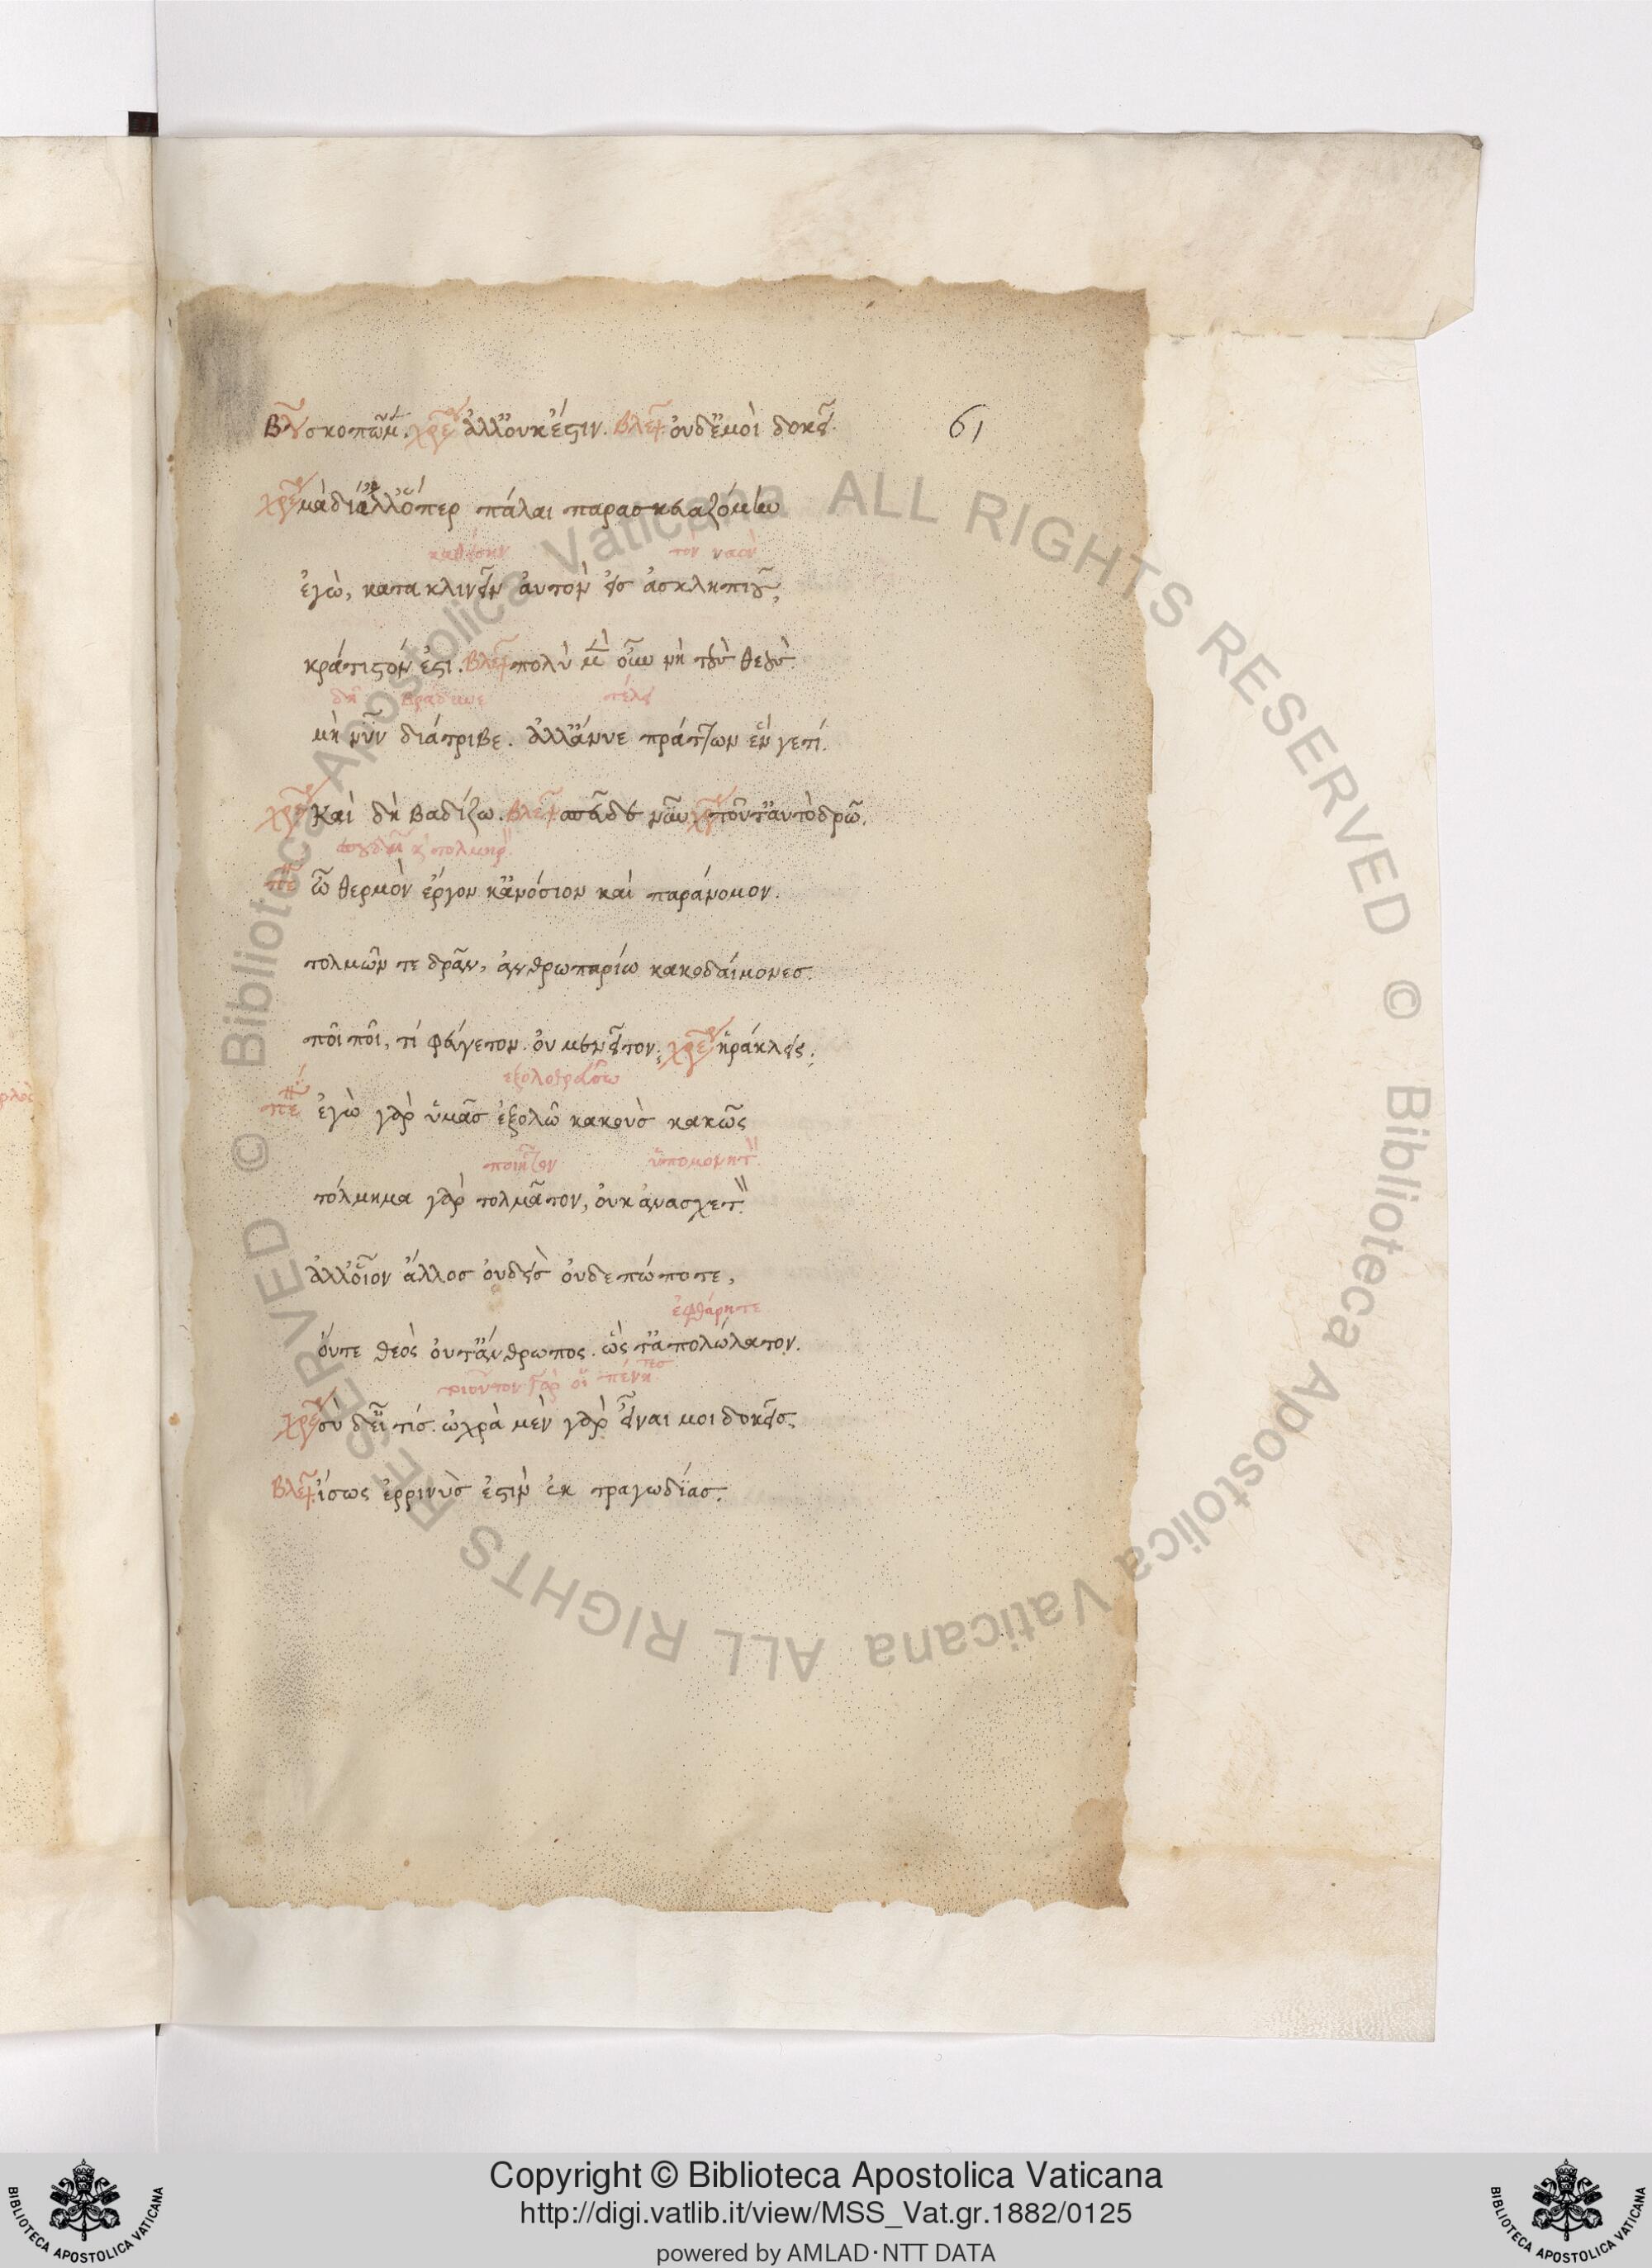 Βλ σκοπῶμεν. χρε ἀλλ' οὐκ ἔστιν. βλεψ οὐδ' ἐμοὶ δοκεῖ.
61
χρε μὰ δί' ἀλλ' ὅπερ πάλαι παρασκευαζόμην
καθίσειν τὸν ναὸν
ἐγὼ, κατακλινεῖν αὐτὸν εἰσ ἀσκληπιοῦ,
κράτιστόν ἐστι. βλεψ πολὺ μὲν οὖν νὴ τοὺς θεούς.
δὴ βράδυνε τέλει
μὴ νῦν διάτριβε. ἀλλ' ἄνυε πράττων ἕν γέ τι.
χρε καὶ δὴ βαδίζω. βλεψ σπεῦδέ νυν. χρε τοῦτ' αὐτὸ δρῶ.
τολμηρ
πε ὦ θερμὸν ἔργον κἀνόσιον καὶ παράνομον.
τολμῶντε δρᾶν, ἀνθρωπαρίω κακοδαίμονεσ.
ποῖ ποῖ, τί φεύγετον. οὐ μενεῖτον; χρε ἡράκλεις.
ἐξολοθρεύσω
πε ἐγὼ γὰρ ὑμᾶσ ἐξολῶ κακοὺσ κακῶς
ὑπομονητ
τόλμημα γὰρ τολμᾶτον, οὐκ ἀνασχετ
ἀλλ' οἷον ἄλλοσ οὐδεὶσ οὐδεπώποτε,
ἐφθάρητε
οὔτε θεὸς οὔτ' ἄνθρωπος. ὥς τ' ἀπολώλατον.
γὰρ οἱ πένητεσ
χρε σὺ δ' εἶ τίσ. ὠχρὰ μὲν γὰρ εἶναι μοι δοκεῖσ.
βλεψ ἴσως ἐρρινὺσ ἐστὶν ἐκ τραγωδίασ.
© Biblioteca Apostolica Vaticana ALL RIGHTS RESERVED © Biblioteca Apostolica Vaticana ALL RIGHTS RESERVED
Copyright © Biblioteca Apostolica Vaticana
http://digi.vatlib.it/view/MSS_Vat.gr.1882/0125
powered by AMLAD·NTT DATA
BIBLIOTECA APOSTOLICA VATICANA
BIBLIOTECA APOSTOLICA VATICANA